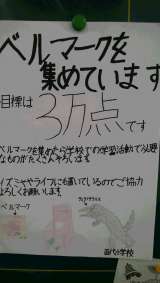 ベルマークを
集めています
目標は
3万点です
ベルマークを集めたら学校での学習活動で必要
なものがたくさんそろいます
イズミヤやライフにも置いているのでご協力
よろしくお願いします
ベルマーク
小学校